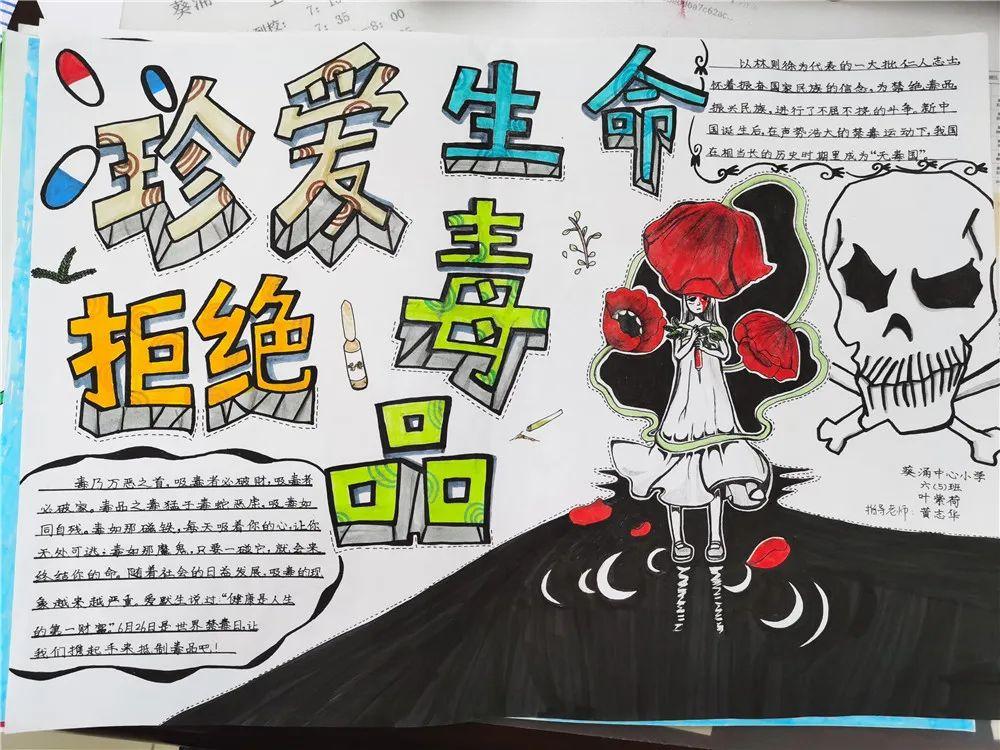 葵涌
7：15
到校：
7：35
—8：00
珍爱生命
拒绝毒品
以林则徐为代表的一大批仁人志士，
怀着振奋国家民族的信念，为禁绝毒品，
振兴民族，进行了不屈不挠的斗争。新中
国诞生后，在声势浩大的禁毒运动下，我国
在相当长的历史时期里成为“无毒国”
毒乃万恶之首，吸毒者必破财，吸毒者
必破家。毒品之毒猛于毒蛇恶虎，吸毒如
同自残。毒如那磁铁，每天吸着你的心，让你
无处可逃；毒如那魔鬼，只要一碰它，就会来
终结你的命。随着社会的日益发展，吸毒的现
象越来越严重。爱默生说过：“健康是人生
的第一财富。”6月26日是世界禁毒日，让
我们携起手来抵制毒品吧！
葵涌中心小学
六(5)班
叶紫荷
指导老师：黄志华